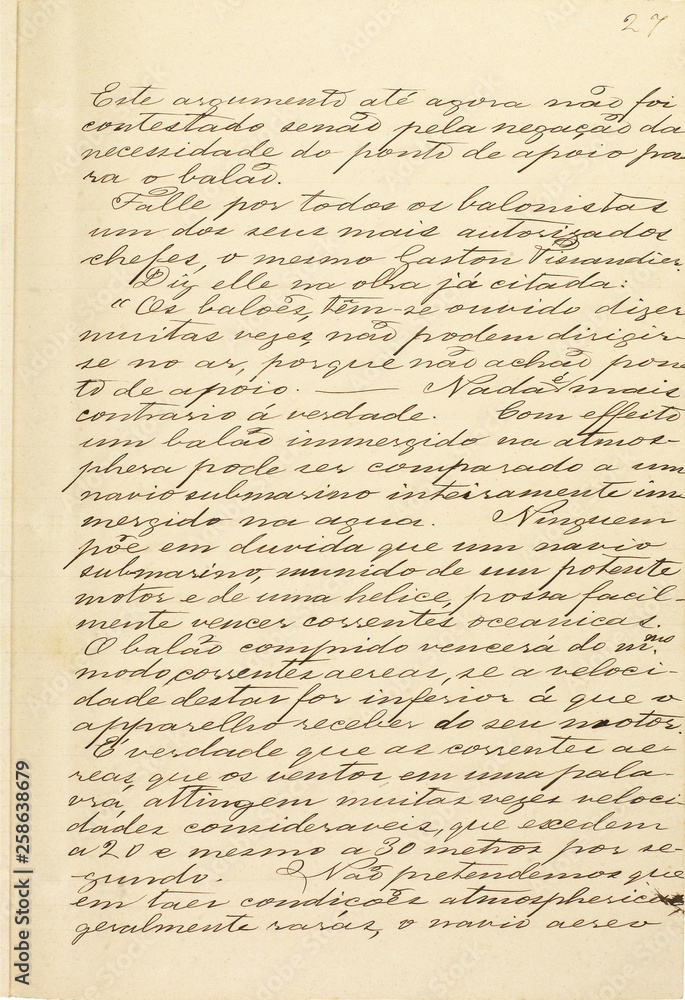 27
Este argumento até agora não foi
contestado senão pela negação da
necessidade do ponto de apoio pa-
ra o balão.
Falle por todos os balonistas
um dos seus mais autorizados
chefes, o mesmo Gaston Tissandier.
Diz elle na obra já citada:
"Os balões, têm-se ouvido dizer
muitas vezes, não podem dirigir-
se no ar, porque não achão pon-
to de apoio. — Nada é mais
contrario á verdade. Com effeito
um balão immergido na atmos-
phera pode ser comparado a um
navio submarino inteiramente im-
mergido na agua. Ninguem
põe em duvida que um navio
submarino, munido de um potente
motor e de uma helice, possa facil-
mente vencer correntes oceanicas.
O balão comprido vencerá do m.mo
modo, correntes aereas, se a veloci-
dade destas for inferior á que o
apparelho receber do seu motor.
É verdade que as correntes ae-
reas, que os ventos em uma pala-
vra, attingem muitas vezes veloci-
dades consideraveis, que excedem
a 20 e mesmo a 30 metros por se-
gundo. Não pretendemos que
em taes condições atmosphericas
geralmente raras, o navio aereo
Adobe Stock | #258638679